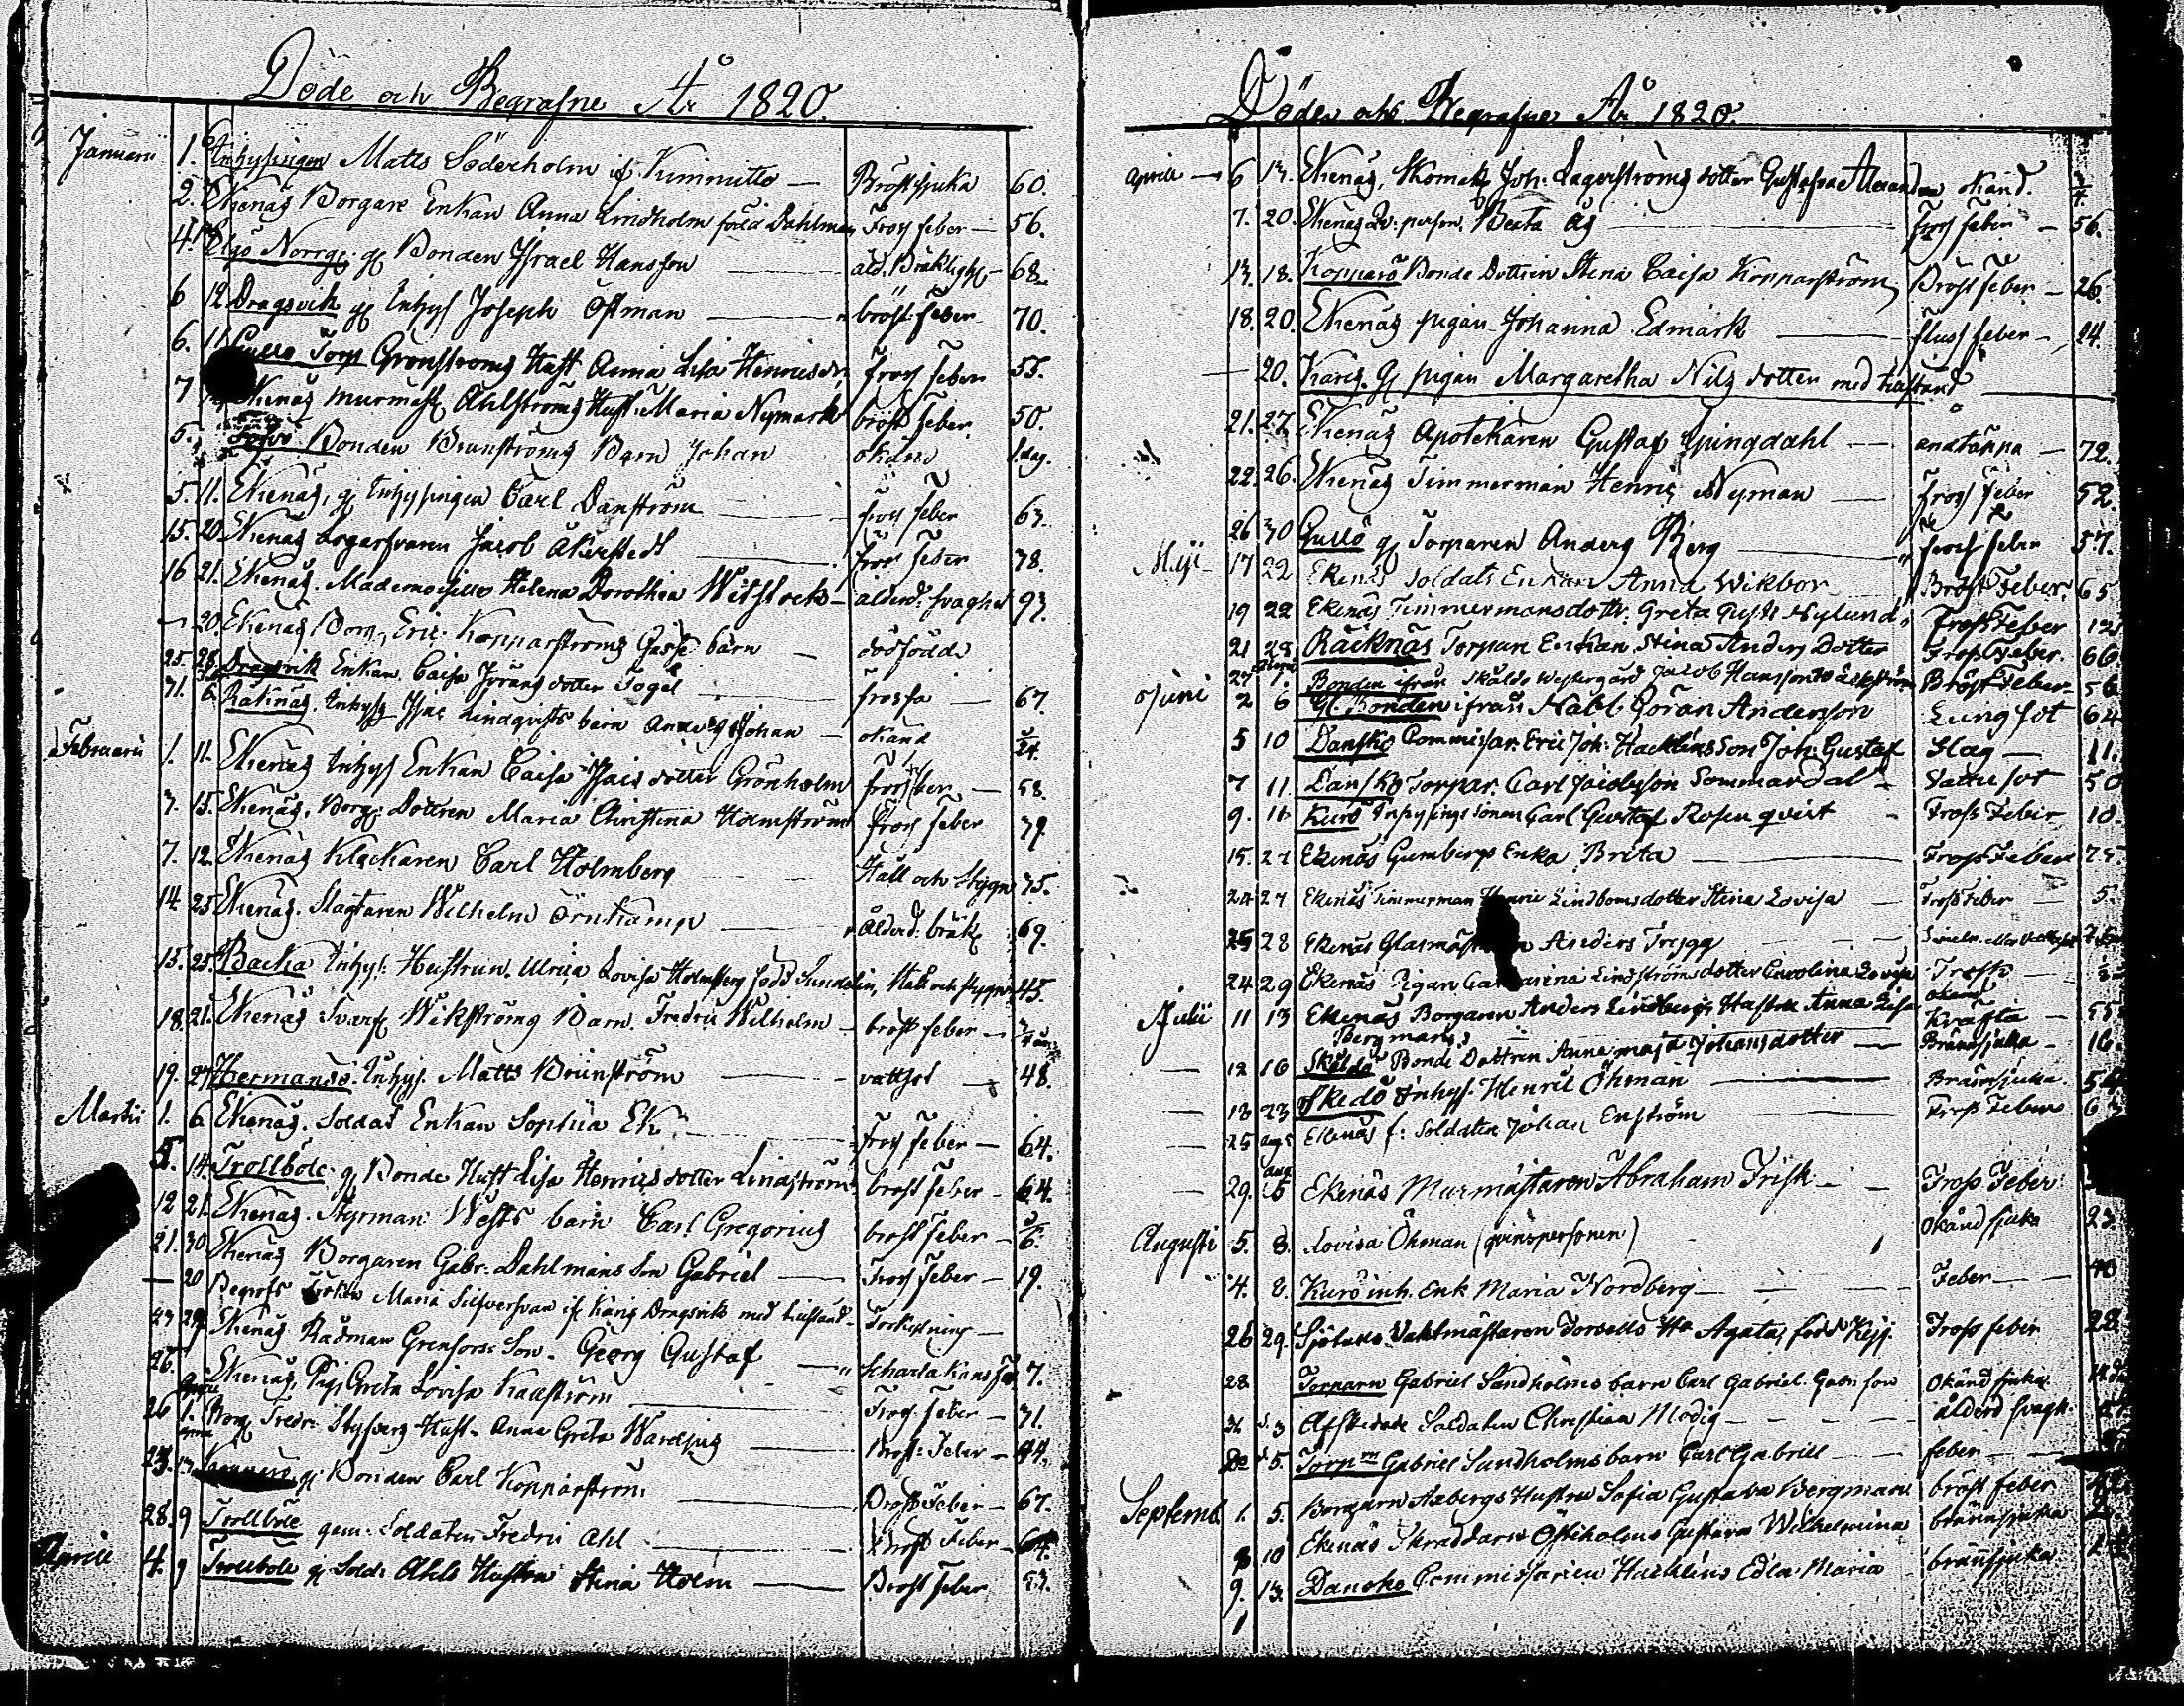 Döde och Begrafne År 1820.
Januarii 1. 6 Inhysingen Matts Söderholm if. Kimmitto — Bröstsjuka 60.
2. Ekenäs Borgare Enkan Anna Lindholm född Dahlman Fross feber — 56.
4. Elgö Norrg. g Bonden Israel Hansson — åld. Bräklighet 68.
6 12 Dragsvik g Inhys Joseph Östman — bröst feber 70.
6. 11 Gullö Torp Grönströms Hust Anna Lisa Henricsdr fross feber 55.
7 Ekenäs murmäst Ahlströms Hust. Maria Nymark bröst feber 50.
5. Bonden Brunströms Barn Johan okänd 1 dag.
5. 11. Ekenäs, g Inhysingen Carl Danström — fross feber 63.
15. 20. Ekenäs borgarsvaren Jacob Åkerstedt — fross feber 78.
16 21. Ekenäs. Mademoiselle Helena Dorothea Witstock — ålderd. svaghet 93.
— 20. Ekenäs Borg. Eric Kopparströms Gosse barn — dödfödde
25. 28. Dragsvik Enkan Caisa Jöransdotter Fogel — frossa — 67.
31. 6. Räknäs, Inhys Isac Lindqvists barn Anders Johan — okänd
Februarii 1. 11. Ekenäs Inhys Enkan Caisa Isacsdotter Grönholm fross feber — 58.
7. 15. Ekenäs, Borg. Dottren Maria Christina Holmström fross feber 39.
7. 12. Ekenäs Klockaren Carl Holmberg Håll och Stygn 75.
14 25 Ekenäs. Slagtaren Wilhelm Örnkamp — Ålderd. bräk 69.
15. 25. Backa Inhys. Hustrun Ulrica Lovisa Holmberg född Sundelin, Håll och stygn 45.
18. 21. Ekenäs Svarf Wikströms Barn Fredric Wilhelm — bröst feber —
19. 27 Hermansö. Inhys. Matts Brunström — vattsot — 48.
Martii 1. 6 Ekenäs. Soldat Enkan Sophia Ek — fross feber — 64.
5. 14. Trollböle g Bonde Hust Lisa Henricsdotter Lindström bröst feber — 64.
12 21. Ekenäs. Styrman Wests barn Carl Gregorius bröst feber —
21. 30 Ekenäs Borgaren Gabr. Dahlmans Son Gabriel — Fross feber — 19.
— 20 Begrofs Fröken Maria Silfversvan if Karis Dragsvik med — Förkylning —
23 29 Ekenäs Rådman Grenfors Son Georg Gustaf — Scharlakans feb. 7.
26. Ekenäs, Pig. Greta Lovisa — Fross feber — 31.
26 1. Borg Fredr. Hust. Anna Greta — Bröst Feber — 44.
23. g Bonden Carl Kopparström — Bröst feber — 67.
28. 9 Trollböle gem. Soldaten Fredric Ahl — Bröst Feber — 64.
Aprill 4. 9 Trollböle g Sold. Ahls Hustru Stina Holm — Bröst feber 53.
Döde och Begrafne År 1820.
Aprill — 6 13. Ekenäs, Skomak Joh. Lagerströms dotter Gustafva Alexandra okänd.
7. 20. Ekenäs qv. person. Beata Ås — fross feber — 56.
13. 18. Kopparö Bonde Dottren Stina Caisa Kopparström Bröst feber — 26.
18. 20. Ekenäs pigan Johanna Edmark — fluss feber — 24.
— 20. Karis g pigan Margaretha Nils dotter med
21. 27 Ekenäs Apotekaren Gustaf Ljungdahl — andtäppa — 72.
22. 26. Ekenäs Timmerman Henric Nyman — fross feber 52.
26 30 Gullö g Torparen Anders Berg — fross feber 57.
Maji 17 22 Ekenäs Soldats Enkan Anna Wikbor Bröst Feber. 65
19 22 Ekenäs Timmermansdottr. Greta Gust. Nylund Fross Feber 12
21 28 Räcknäs Torpare Enkan Stina Anders Dotter Fross Feber. 66
27 Bonden ifrån Skåldö Westergård Jacob Hansson Bröst Feber 56
Juni 2 6 Gl. Bonden ifrån Nabb Göran Andersson Lungsot 64
5 10 Danskö Commissar. Eric Joh. Hacklins Son Joh. Gustaf Slag — 11.
7 11 Danskö Torpar. Carl Jacobsson Sommardal — Vattusot 50
9. 11 Kurö Inhysings sonen Carl Gustaf Rosenqvist Fross Feber 10.
15. 21 Ekenäs Gumbergs Enka Brita — Fross Feber 75.
24 27 Ekenäs Timmerman Henric Lindbomsdotter Stina Lovisa — Fross Feber — 5.
25 28 Ekenäs Anders Trygg
24 29 Ekenäs Pigan Catarina Lindströms dotter Carolina Lovisa Trosk — okänd
Julii 11 13 Ekenäs Borgaren Anders Lindbergs Hustru Anna Lisa Bergman Kräfta — 55
— 12 16 Skåldö Bonde Dottren Anna Maja Johansdotter — Brännsjuka — 16.
— 18 23 Skedö Inhys. Henric Öhman — Brännsjuka.
— 25 Aug 5 Ekenäs f: Soldaten Johan Enström Fross Feber
— 29. Aug 5 Ekenäs Murmästaren Abraham Frisk — Fross Feber
Augusti 5. 8. Lovisa Öhman (qvinspersonen) Okänd sjuka 23.
4. 8. Kurö inh. Enk Maria Nordberg — Feber — 40
26 29. Vaktmästaren Forsells Ha Agata, född Fross feber 22
28 Torparn Gabriel Sandholms barn Carl Gabriel Okänd sjuka
31 3 Afskedade Soldaten Christian Modig — ålderd svagh.
5. Torpn Gabriel Sundholms barn Carl Gabriel — feber —
Septemb. 1. 5. Borgarn Axbergs Hustru Sofia Gustava Bergman bröst feber 42
8 10 Ekenäs Skraddarn Österholms Gustava Wilhelmina brännsjuka
9. 13. Danskö Commissarien Hacklins Edla Maria brännsjuka